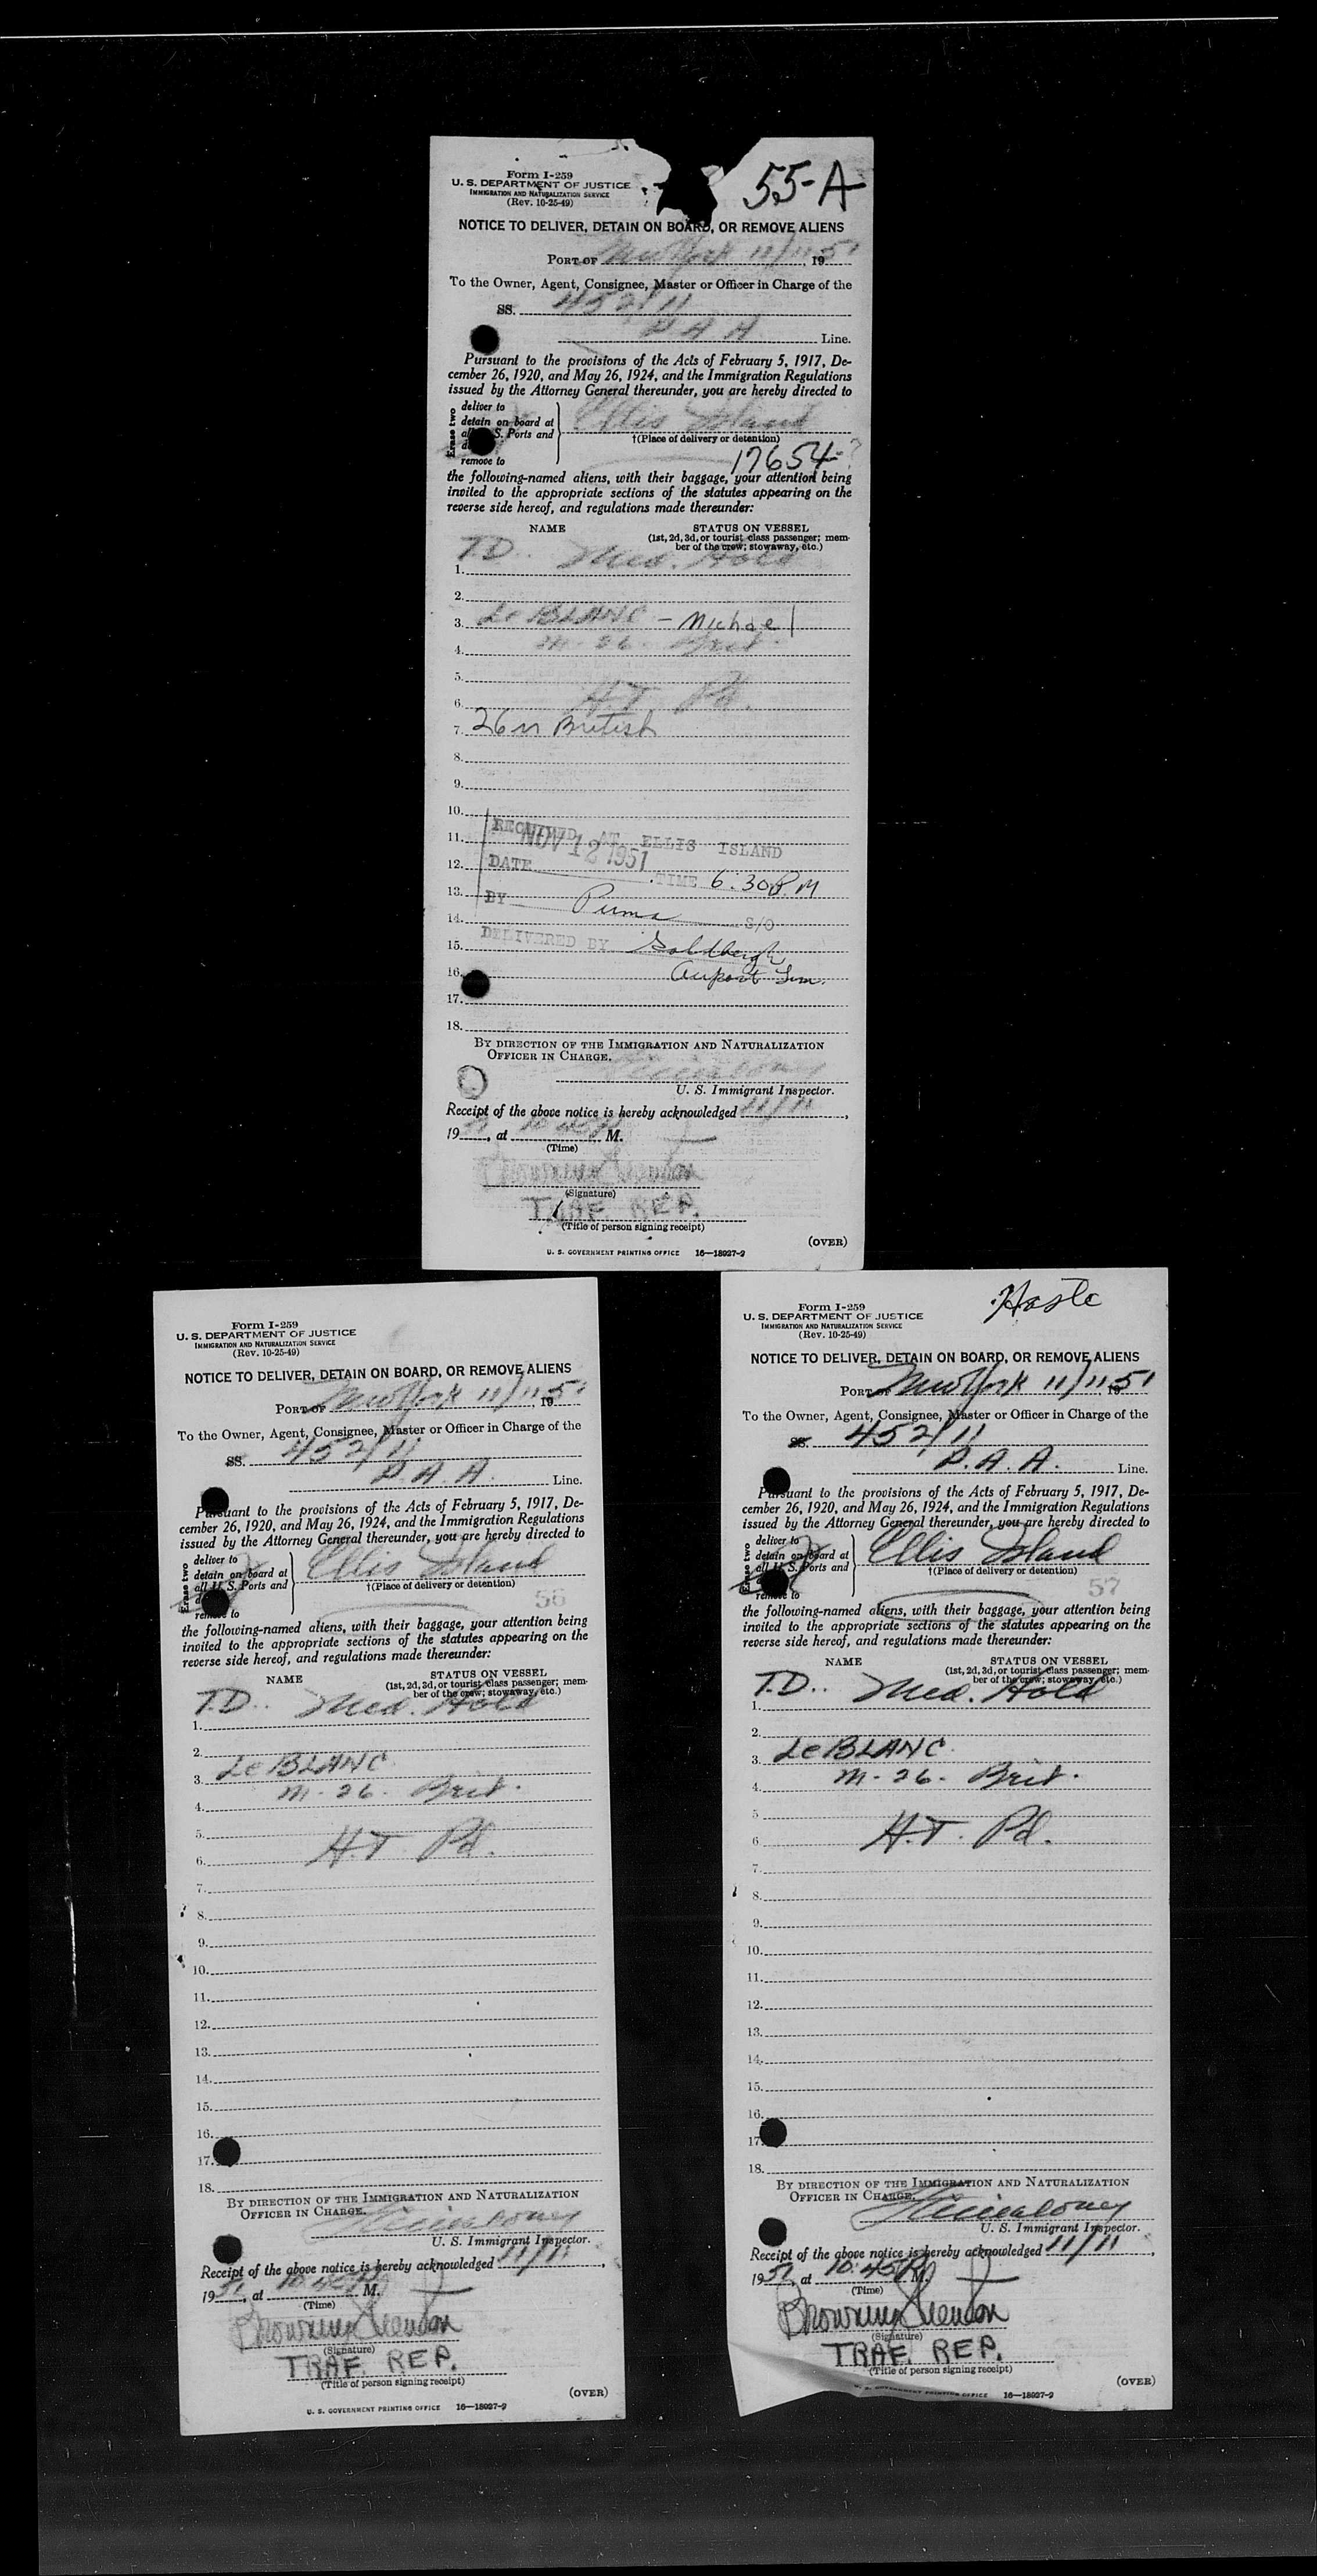 55-A
Form I-259
U. S. DEPARTMENT OF JUSTICE
IMMIGRATION AND NATURALIZATION SERVICE
(Rev. 10-25-49)
NOTICE TO DELIVER, DETAIN ON BOARD, OR REMOVE ALIENS
PORT OF New York 11/11, 1951
To the Owner, Agent, Consignee, Master or Officer in Charge of the
SS. 452/11
P A A Line.
Pursuant to the provisions of the Acts of February 5, 1917, De-
cember 26, 1920, and May 26, 1924, and the Immigration Regulations
issued by the Attorney General thereunder, you are hereby directed to
Erase two
deliver to
detain on board at
all U. S. Ports and
remove to
Ellis Island
†(Place of delivery or detention)
17654
the following-named aliens, with their baggage, your attention being
invited to the appropriate sections of the statutes appearing on the
reverse side hereof, and regulations made thereunder:
NAME STATUS ON VESSEL
(1st, 2d, 3d, or tourist class passenger; mem-
ber of the crew; stowaway, etc.)
T.D.. Med. Hold
1.
2.
3. Le BLANC - Michael
m - 26. Brit.
4.
5.
6. H.T. Pd.
7. 26 m British
8.
9.
10.
11. RECEIVED AT ELLIS ISLAND
NOV 12 1951
12. DATE TIME 6:30 P.M
13. BY Puma S/O
14.
15. DELIVERED BY Goldbergh
16. Airport Lim.
17.
18.
BY DIRECTION OF THE IMMIGRATION AND NATURALIZATION
OFFICER IN CHARGE.
U. S. Immigrant Inspector.
Receipt of the above notice is hereby acknowledged 11/11,
19 51, at 10:45 P M.
(Time)
(Signature)
TRAF. REP.
(Title of person signing receipt)
(OVER)
U. S. GOVERNMENT PRINTING OFFICE 16—18927-2
Form I-259
U. S. DEPARTMENT OF JUSTICE
IMMIGRATION AND NATURALIZATION SERVICE
(Rev. 10-25-49)
NOTICE TO DELIVER, DETAIN ON BOARD, OR REMOVE ALIENS
PORT OF New York 11/11, 1951
To the Owner, Agent, Consignee, Master or Officer in Charge of the
SS. 452/11
P. A. A. Line.
Pursuant to the provisions of the Acts of February 5, 1917, De-
cember 26, 1920, and May 26, 1924, and the Immigration Regulations
issued by the Attorney General thereunder, you are hereby directed to
Erase two
deliver to
detain on board at
all U. S. Ports and
remove to
Ellis Island
†(Place of delivery or detention)
56
the following-named aliens, with their baggage, your attention being
invited to the appropriate sections of the statutes appearing on the
reverse side hereof, and regulations made thereunder:
NAME STATUS ON VESSEL
(1st, 2d, 3d, or tourist class passenger; mem-
ber of the crew; stowaway, etc.)
T.D.. Med. Hold
1.
2.
3. Le BLANC
m - 26. Brit.
4.
5.
6. H.T. Pd.
7.
8.
9.
10.
11.
12.
13.
14.
15.
16.
17.
18.
BY DIRECTION OF THE IMMIGRATION AND NATURALIZATION
OFFICER IN CHARGE.
U. S. Immigrant Inspector.
Receipt of the above notice is hereby acknowledged 11/11,
19 51, at 10:45 P M.
(Time)
(Signature)
TRAF. REP.
(Title of person signing receipt)
(OVER)
U. S. GOVERNMENT PRINTING OFFICE 16—18927-2
Haste
Form I-259
U. S. DEPARTMENT OF JUSTICE
IMMIGRATION AND NATURALIZATION SERVICE
(Rev. 10-25-49)
NOTICE TO DELIVER, DETAIN ON BOARD, OR REMOVE ALIENS
PORT OF New York 11/11 1951
To the Owner, Agent, Consignee, Master or Officer in Charge of the
SS. 452/11
P. A. A. Line.
Pursuant to the provisions of the Acts of February 5, 1917, De-
cember 26, 1920, and May 26, 1924, and the Immigration Regulations
issued by the Attorney General thereunder, you are hereby directed to
Erase two
deliver to
detain on board at
all U. S. Ports and
remove to
Ellis Island
†(Place of delivery or detention)
57
the following-named aliens, with their baggage, your attention being
invited to the appropriate sections of the statutes appearing on the
reverse side hereof, and regulations made thereunder:
NAME STATUS ON VESSEL
(1st, 2d, 3d, or tourist class passenger; mem-
ber of the crew; stowaway, etc.)
T.D.. Med. Hold
1.
2.
3. Le BLANC.
m - 26. Brit.
4.
5.
6. H.T. Pd.
7.
8.
9.
10.
11.
12.
13.
14.
15.
16.
17.
18.
BY DIRECTION OF THE IMMIGRATION AND NATURALIZATION
OFFICER IN CHARGE.
U. S. Immigrant Inspector.
Receipt of the above notice is hereby acknowledged 11/11,
19 51, at 10:45 P M.
(Time)
(Signature)
TRAF. REP.
(Title of person signing receipt)
(OVER)
U. S. GOVERNMENT PRINTING OFFICE 16—18927-2